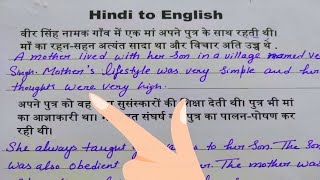 Hindi to English
वीर सिंह नामक गाँव में एक मां अपने पुत्र के साथ रहती थी।
माँ का रहन-सहन अत्यंत सादा था और विचार अति उच्च थे.
A mother lived with her son in a village named
Singh. Mother's lifestyle was very simple and her
thoughts were very high.
अपने पुत्र को वह सुसंस्कारों की शिक्षा देती थी। पुत्र भी मां
का आज्ञाकारी था। संघर्ष पुत्र का पालन-पोषण कर
रही थी।
She always taught to her son. The son
was also obedient The mother was